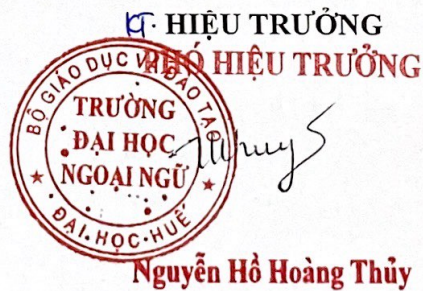 KT. HIỆU TRƯỞNG
PHÓ HIỆU TRƯỞNG
BỘ GIÁO DỤC VÀ ĐÀO TẠO
TRƯỜNG
ĐẠI HỌC
NGOẠI NGỮ
★ ĐẠI HỌC HUẾ ★
Nguyễn Hồ Hoàng Thủy